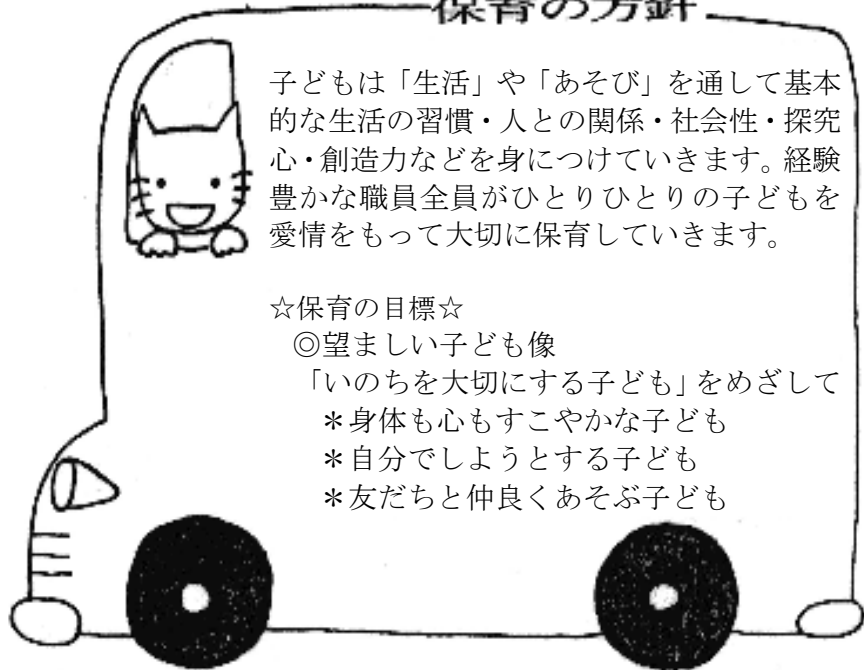 保育の方針
子どもは「生活」や「あそび」を通して基本
的な生活の習慣・人との関係・社会性・探究
心・創造力などを身につけていきます。経験
豊かな職員全員がひとりひとりの子どもを
愛情をもって大切に保育していきます。
☆保育の目標☆
◎望ましい子ども像
「いのちを大切にする子ども」をめざして
＊身体も心もすこやかな子ども
＊自分でしようとする子ども
＊友だちと仲良くあそぶ子ども